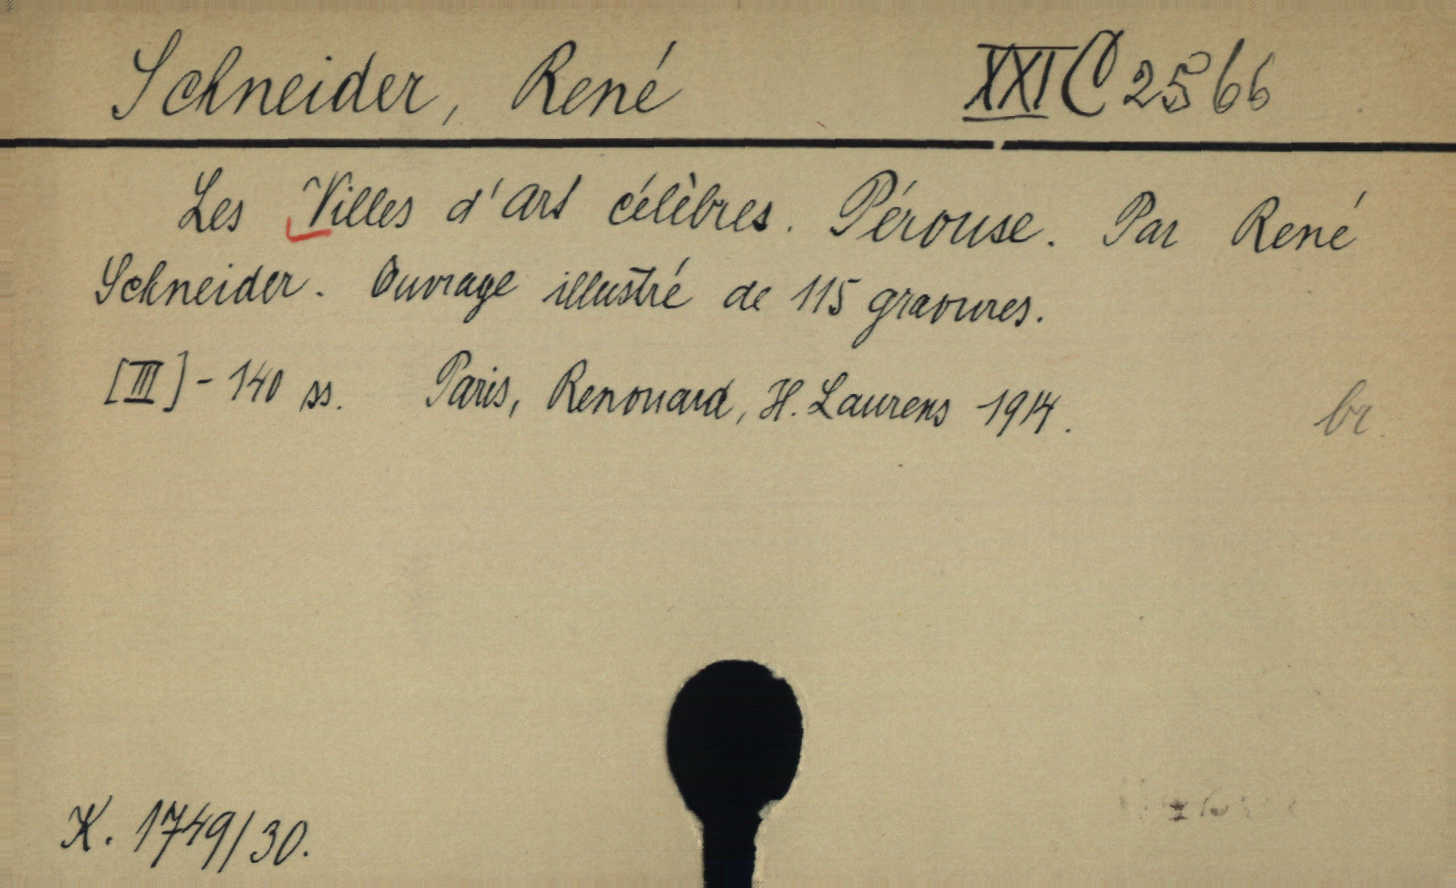 Schneider, René XXI C 2566
Les Villes d'Art célèbres. Pérouse. Par René
Schneider. Ouvrage illustré de 115 gravures.
[III] - 140 ss. Paris, Renouard, H. Laurens 1914.
br.
K. 1749/30.